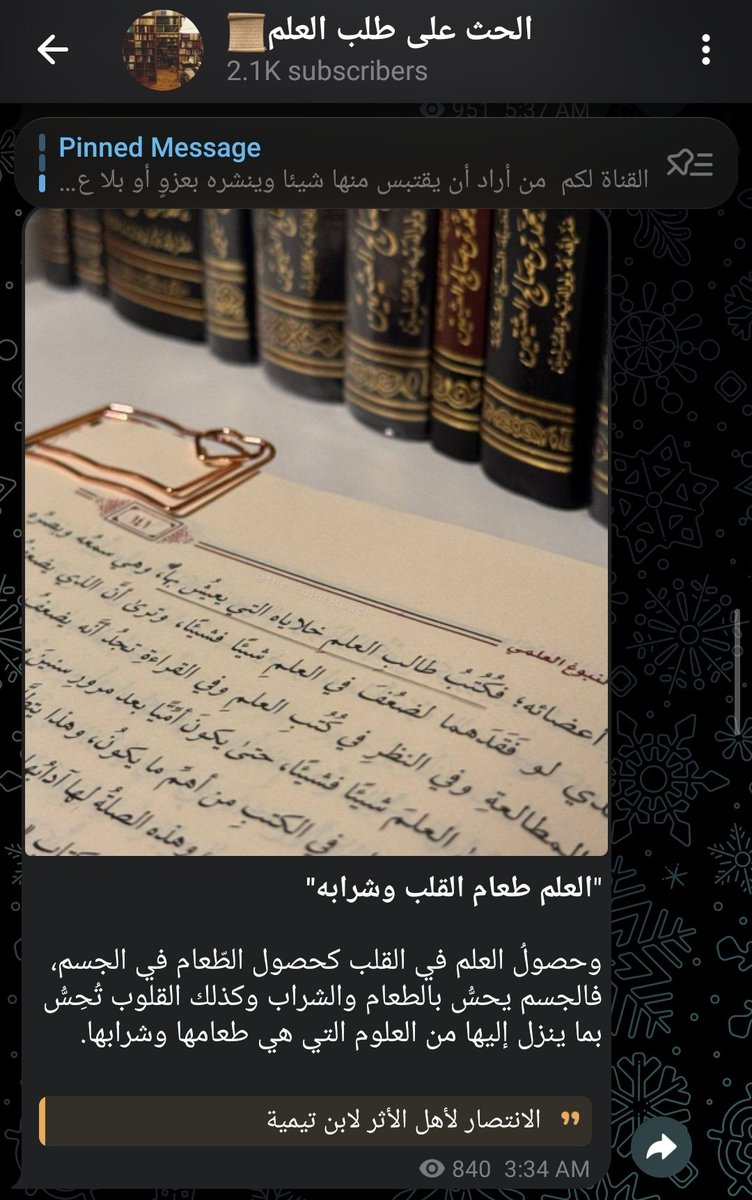 الحث على طلب العلم
2.1K subscribers
951 5:37 AM
Pinned Message
القناة لكم من أراد أن يقتبس منها شيئا وينشره بعزوٍ أو بلا ع...
محمد بن صالح العثيمين
محمد بن صالح العثيمين
محمد بن صالح العثيمين
١٤١
النبوغ العلمي
أعضائه؛ فكُتُبُ طالب العلم خلاياه التي يعيش بها، وهي سمعُه وبصرُه
لو فَقَدَهما لضعُفَ في العلمِ شيئًا فشيئًا، وترى أنَّ الذي يضعُفُ
المطالعةِ وفي النظرِ في كُتُبِ العلمِ وفي القراءةِ تجدُ أنَّه يضعُفُ
العلمَ شيئًا فشيئًا، حتى يكونَ أمِّيًّا بعد مرورِ سنين
في الكتبِ من أهمِّ ما يكونُ، وهذا
وهذه الصلةُ لها آدابُها
"العلم طعام القلب وشرابه"
وحصولُ العلم في القلب كحصول الطّعام في الجسم،
فالجسم يحسُّ بالطعام والشراب وكذلك القلوب تُحِسُّ
بما ينزل إليها من العلوم التي هي طعامها وشرابها.
الانتصار لأهل الأثر لابن تيمية
840 3:34 AM